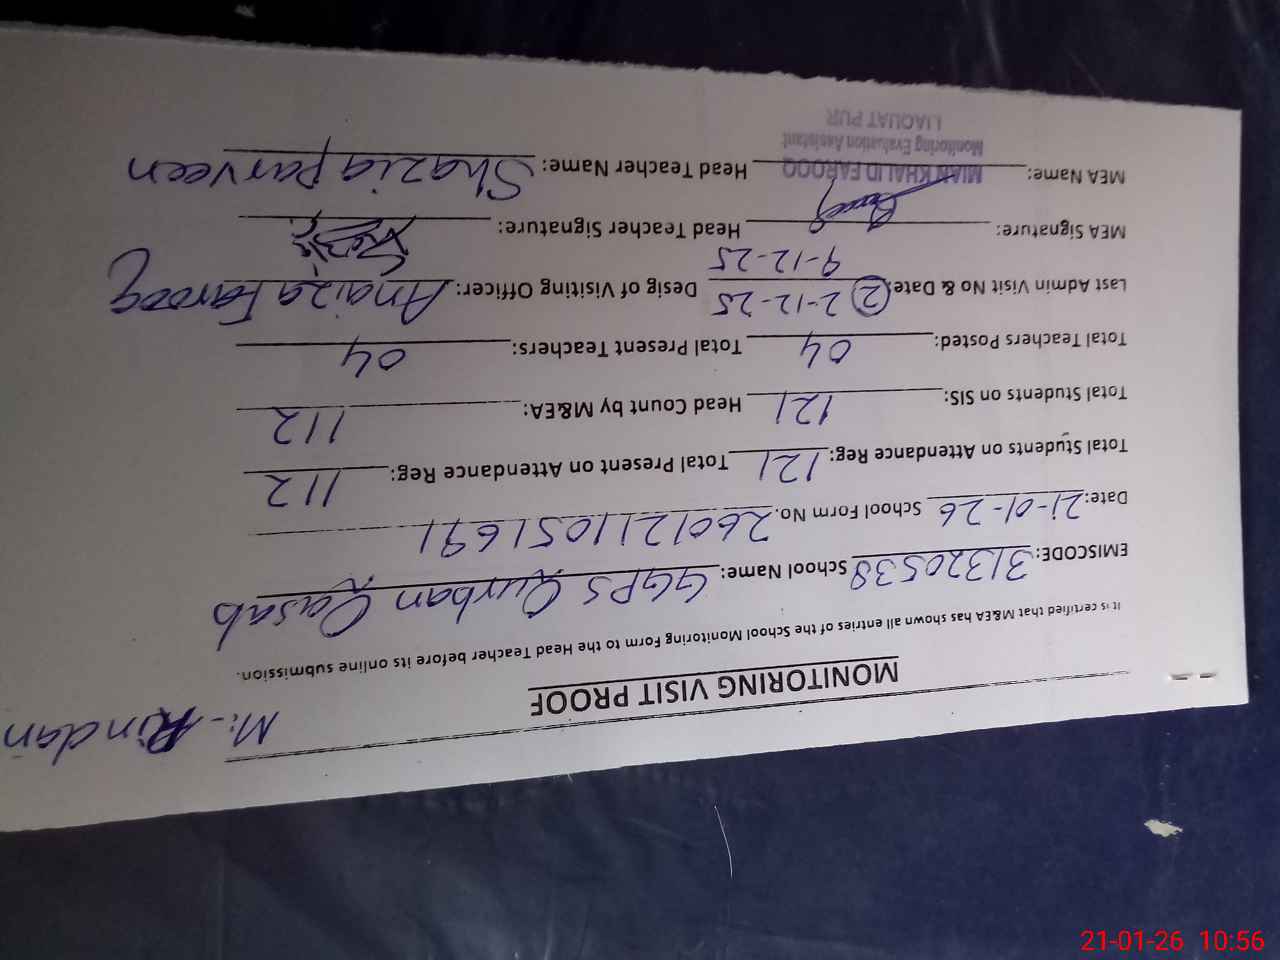 M:- Rindan
MONITORING VISIT PROOF
It is certified that M&EA has shown all entries of the School Monitoring Form to the Head Teacher before its online submission.
EMISCODE: 31320538 School Name: GGPS Qurban Qasab
Date: 21-01-26 School Form No. 2601211051691
Total Students on Attendance Reg: 121 Total Present on Attendance Reg: 112
Total Students on SIS: 121 Head Count by M&EA: 112
Total Teachers Posted: 04 Total Present Teachers: 04
Last Admin Visit No & Date: 2 2-12-25 Desig of Visiting Officer: Anaiza Farooq
9-12-25
MEA Signature: Head Teacher Signature:
MEA Name: MIAN KHALID FAROOQ Head Teacher Name: Shazia parveen
Monitoring Evaluation Assistant
LIAQUAT PUR
21-01-26 10:56